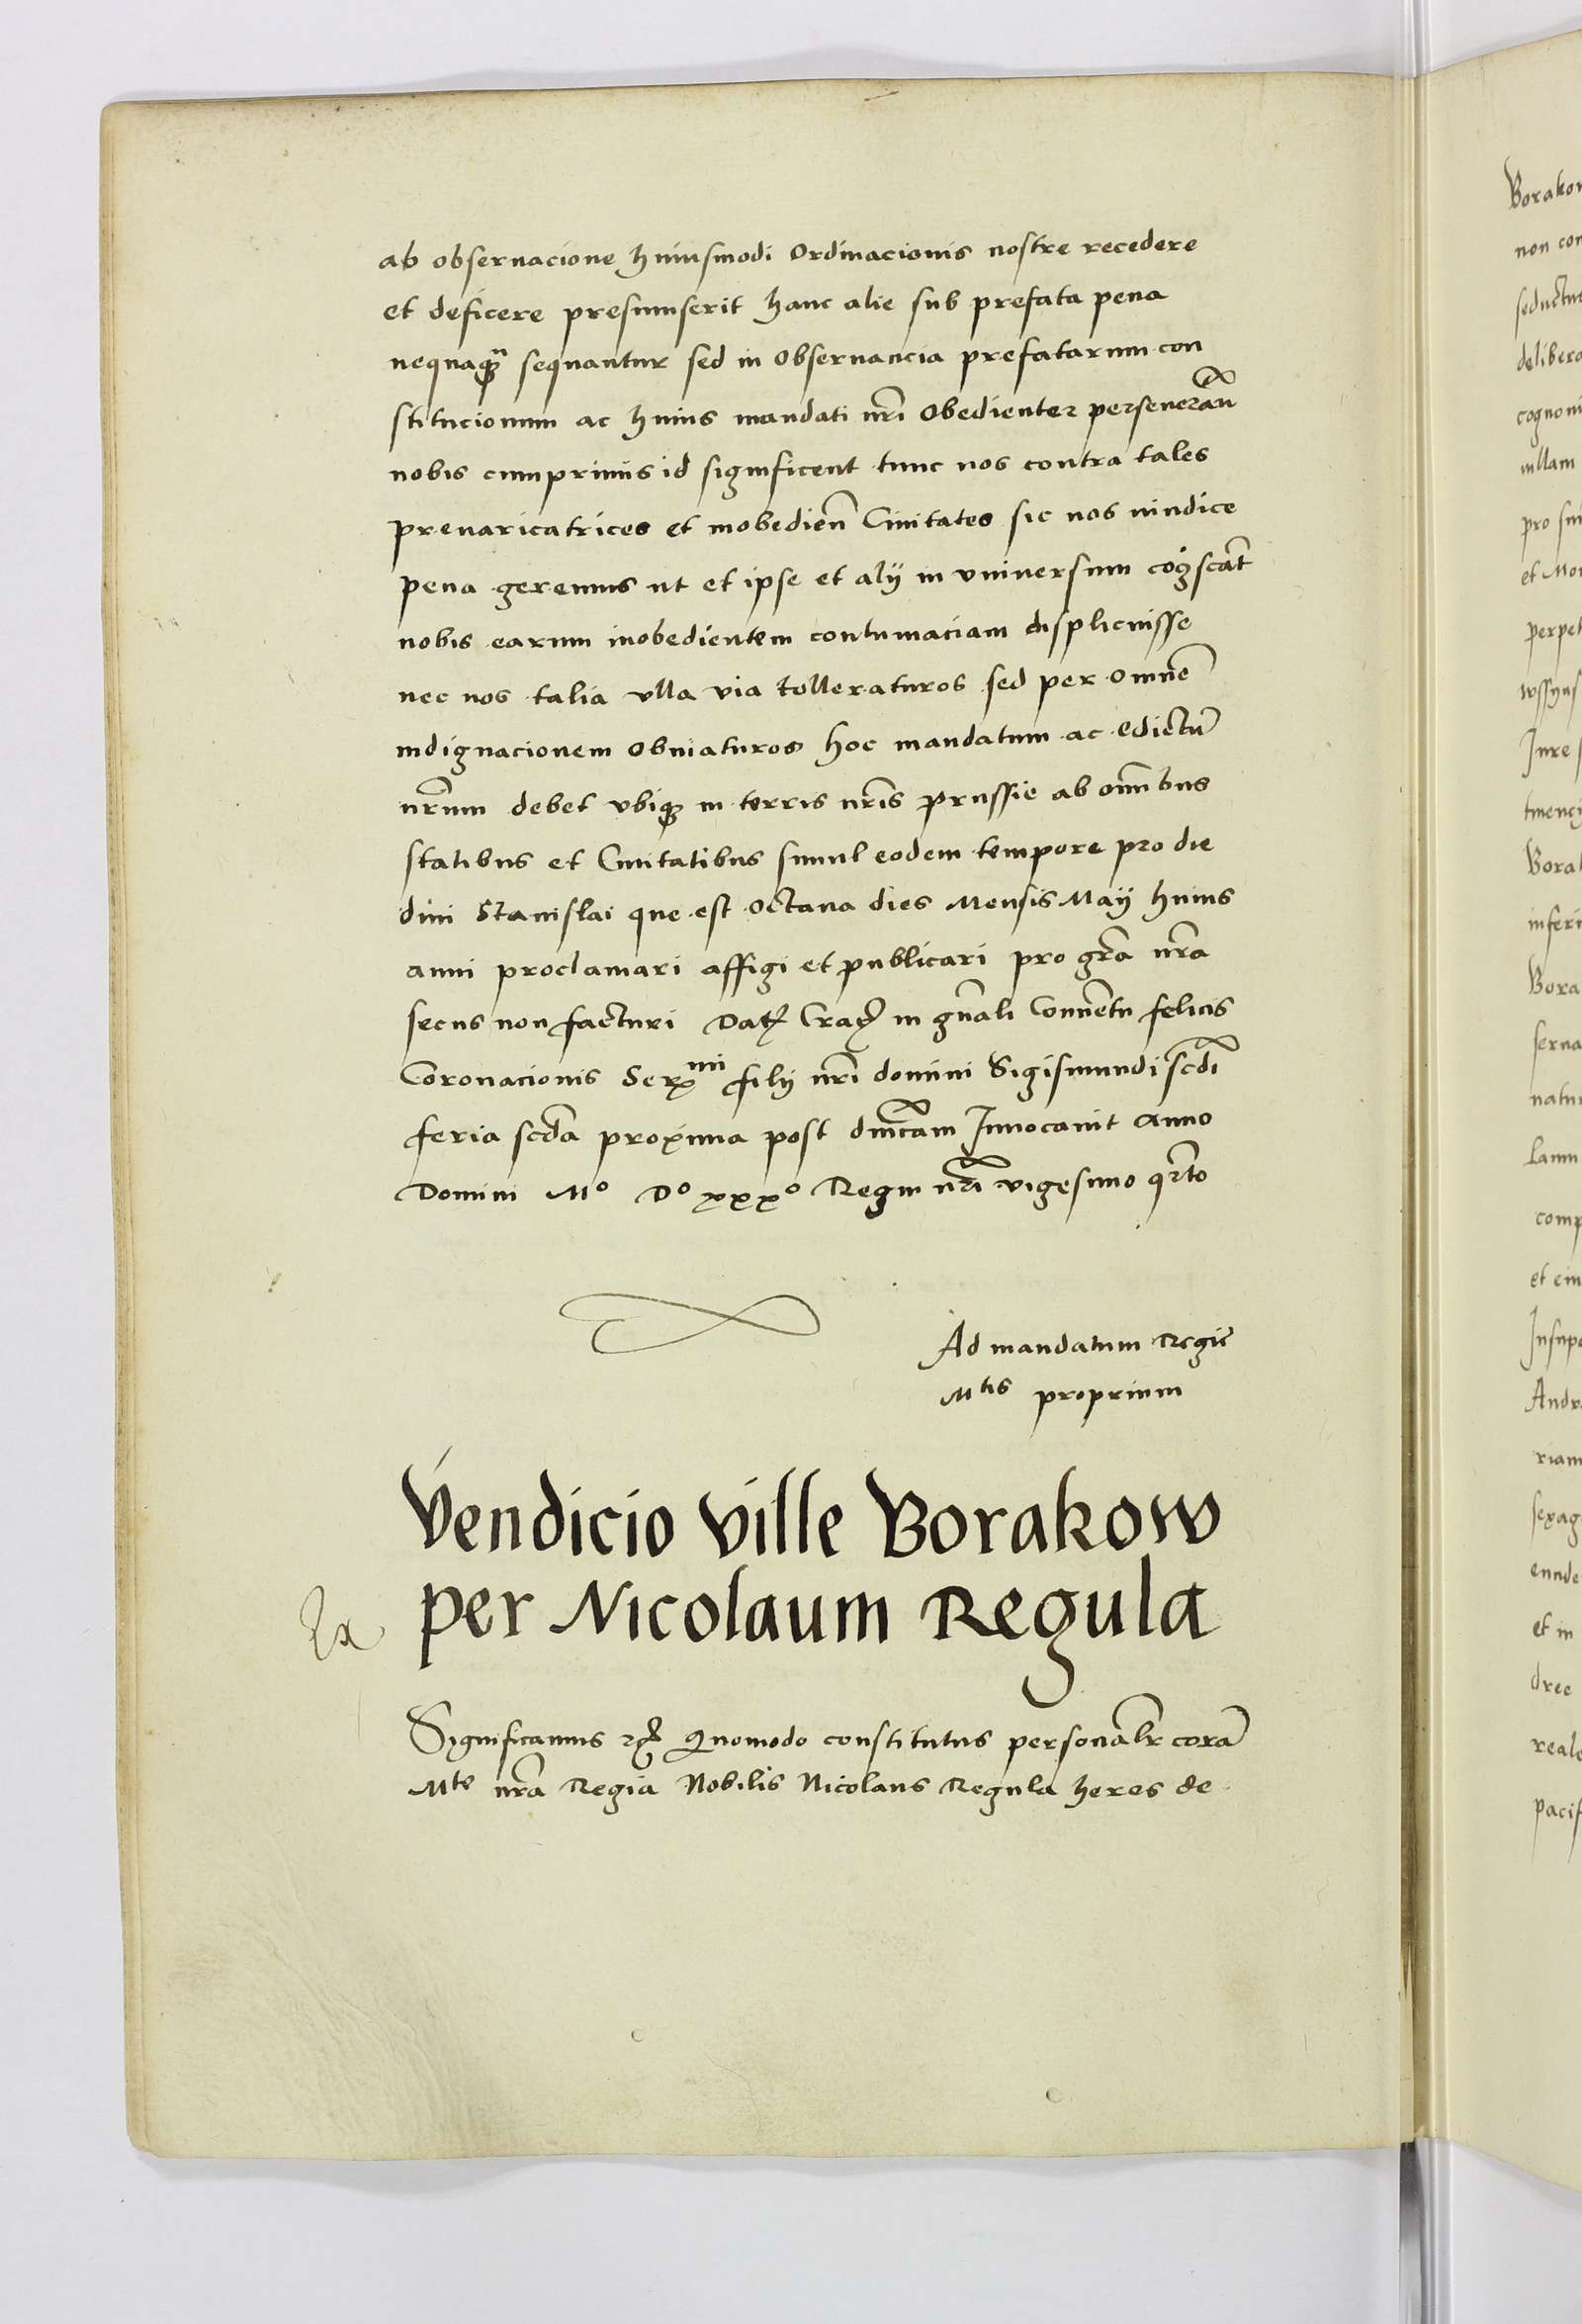 ab obseruacione huiusmodi Ordinacionis nostre recedere
et deficere presumserit hanc alie sub prefata pena
nequaq̃ sequantur sed in obseruancia prefatarum con
stitucionum ac huius mandati nr̃i obedienter perseuerãn
nobis cumprimis id significent tunc nos contra tales
preuaricatrices et inobedieñ Ciuitates sic nos uindice
pena geremus ut et ipse et alij in vniuersum cog̊scãt
nobis earum inobedientem contumaciam displicuisse
nec nos talia vlla via tolleraturos sed per omnẽ
indignacionem obuiaturos hoc mandatum ac edictũ
nr̃um debet vbiq in terris nr̃is prussie ab oм̃ibus
statibus et Ciuitatibus simul eodem tempore pro die
diui Stanislai que est octaua dies Mensis Maij huius
anni proclamari affigi et publicari pro gr̃a nr̃a
secus non facturi Dat Crac in gñali Conuẽtu felicis
Coronacionis Serᵐⁱ filij nr̃i domini Sigismundi scd̃i
feria scd̃a proxima post dnĩcam Inuocauit anno
Domini Mº Dº xxxº Regni nr̃i vigesimo qr̃to
Ad mandatum Regiẽ
Mᵗⁱˢ proprium
Vendicio ville Borakow
per Nicolaum Regula
Significamus Quomodo constitutus personalr̃ corã
Mᵗᵉ nr̃a Regia Nobilis Nicolaus Regula heres de
Borakow
non con
deliber
cognom
ullam
pro sui
et Mon
perpet
Iure
inferi
Bora
serua
natur
comp
Insup
Andr
riam
sexag
et in
reale
pacif